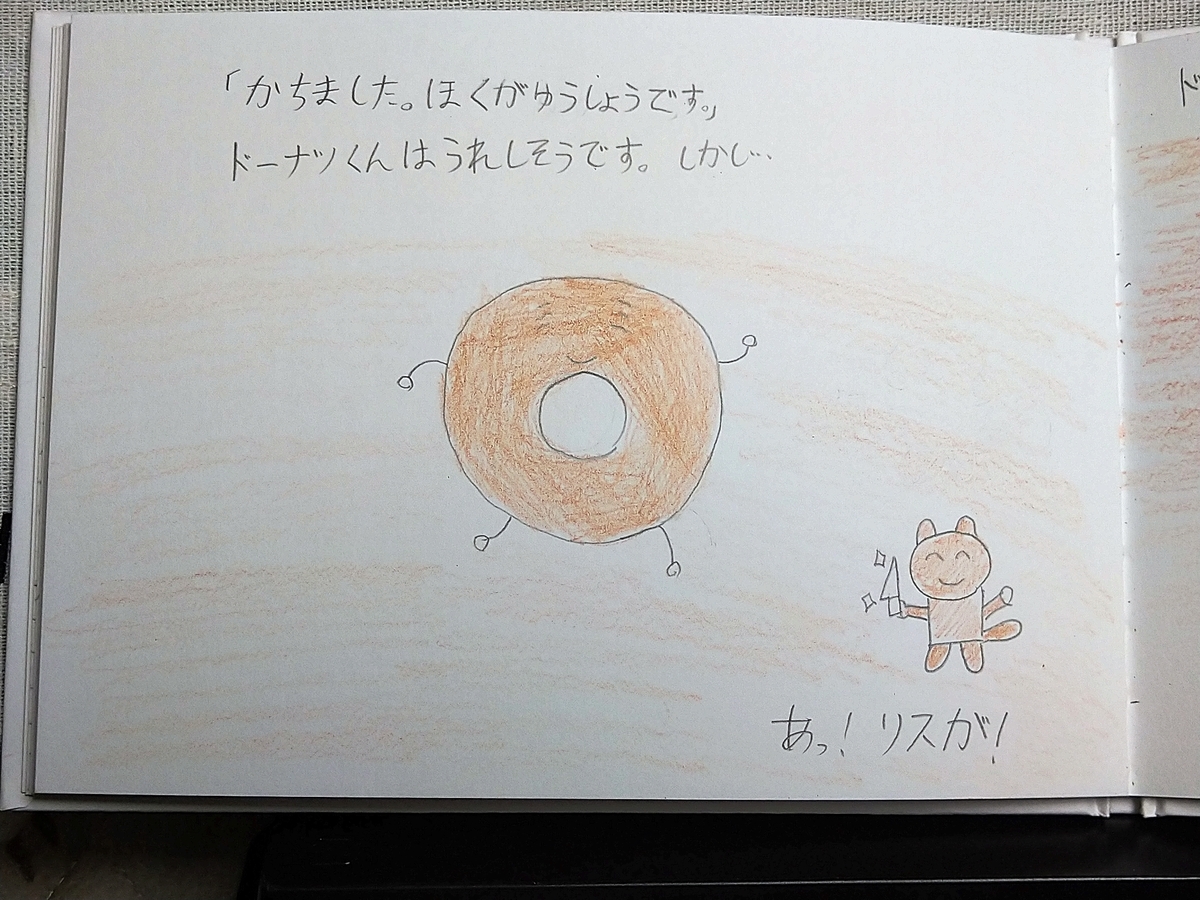 「かちました。ほくがゆうしょうです。」
ドーナツくんはうれしそうです。しかし…
あっ!リスが!